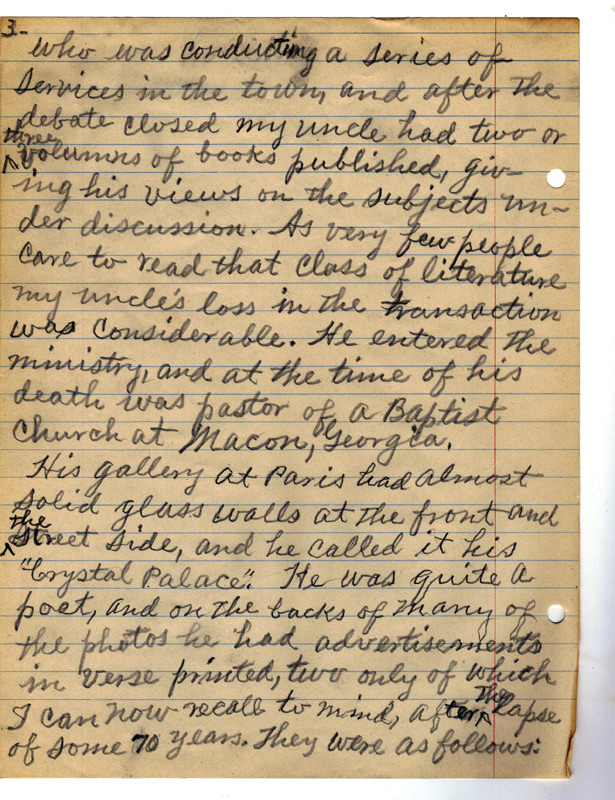 3-
who was conducting a series of
services in the town, and after the
debate closed my uncle had two or
three
^ volumns of books published, giv-
ing his views on the subjects un-
der discussion. As very few people
care to read that class of literature
my uncle's loss in the transaction
was considerable. He entered the
ministry, and at the time of his
death was pastor of a Baptist
Church at Macon, Georgia.
His gallery at Paris had almost
solid glass walls at the front and
the
^ street side, and he called it his
"Crystal Palace". He was quite a
poet, and on the backs of many of
the photos he had advertisements
in verse printed, two only of which
I can now recall to mind, after ^ the lapse
of some 70 years. They were as follows: